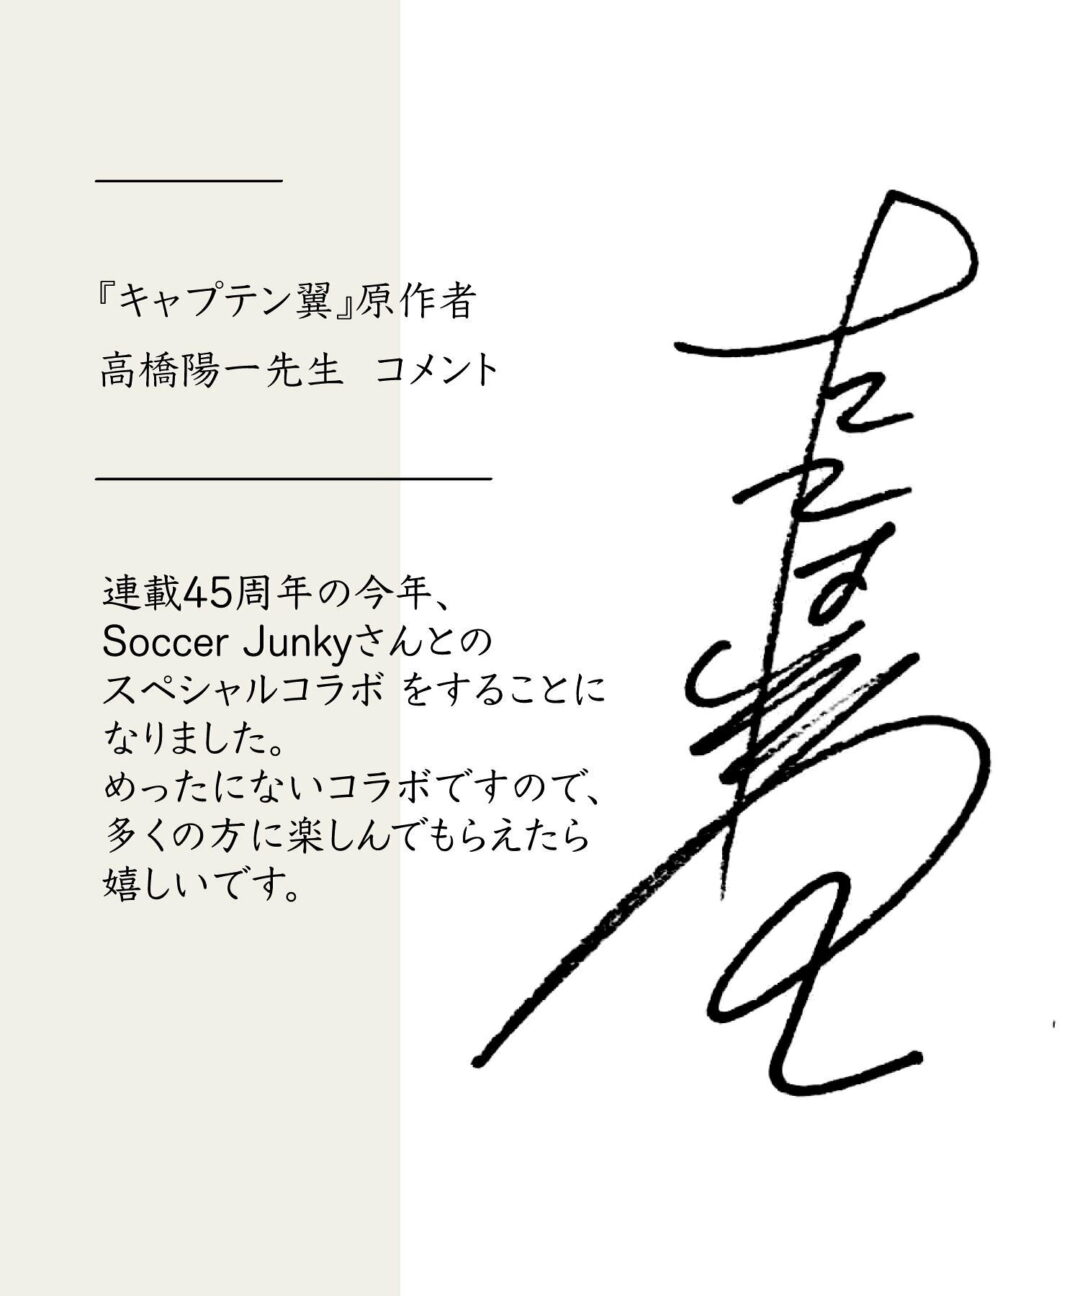 『キャプテン翼』原作者
高橋陽一先生 コメント
連載45周年の今年、
Soccer Junkyさんとの
スペシャルコラボ をすることに
なりました。
めったにないコラボですので、
多くの方に楽しんでもらえたら
嬉しいです。